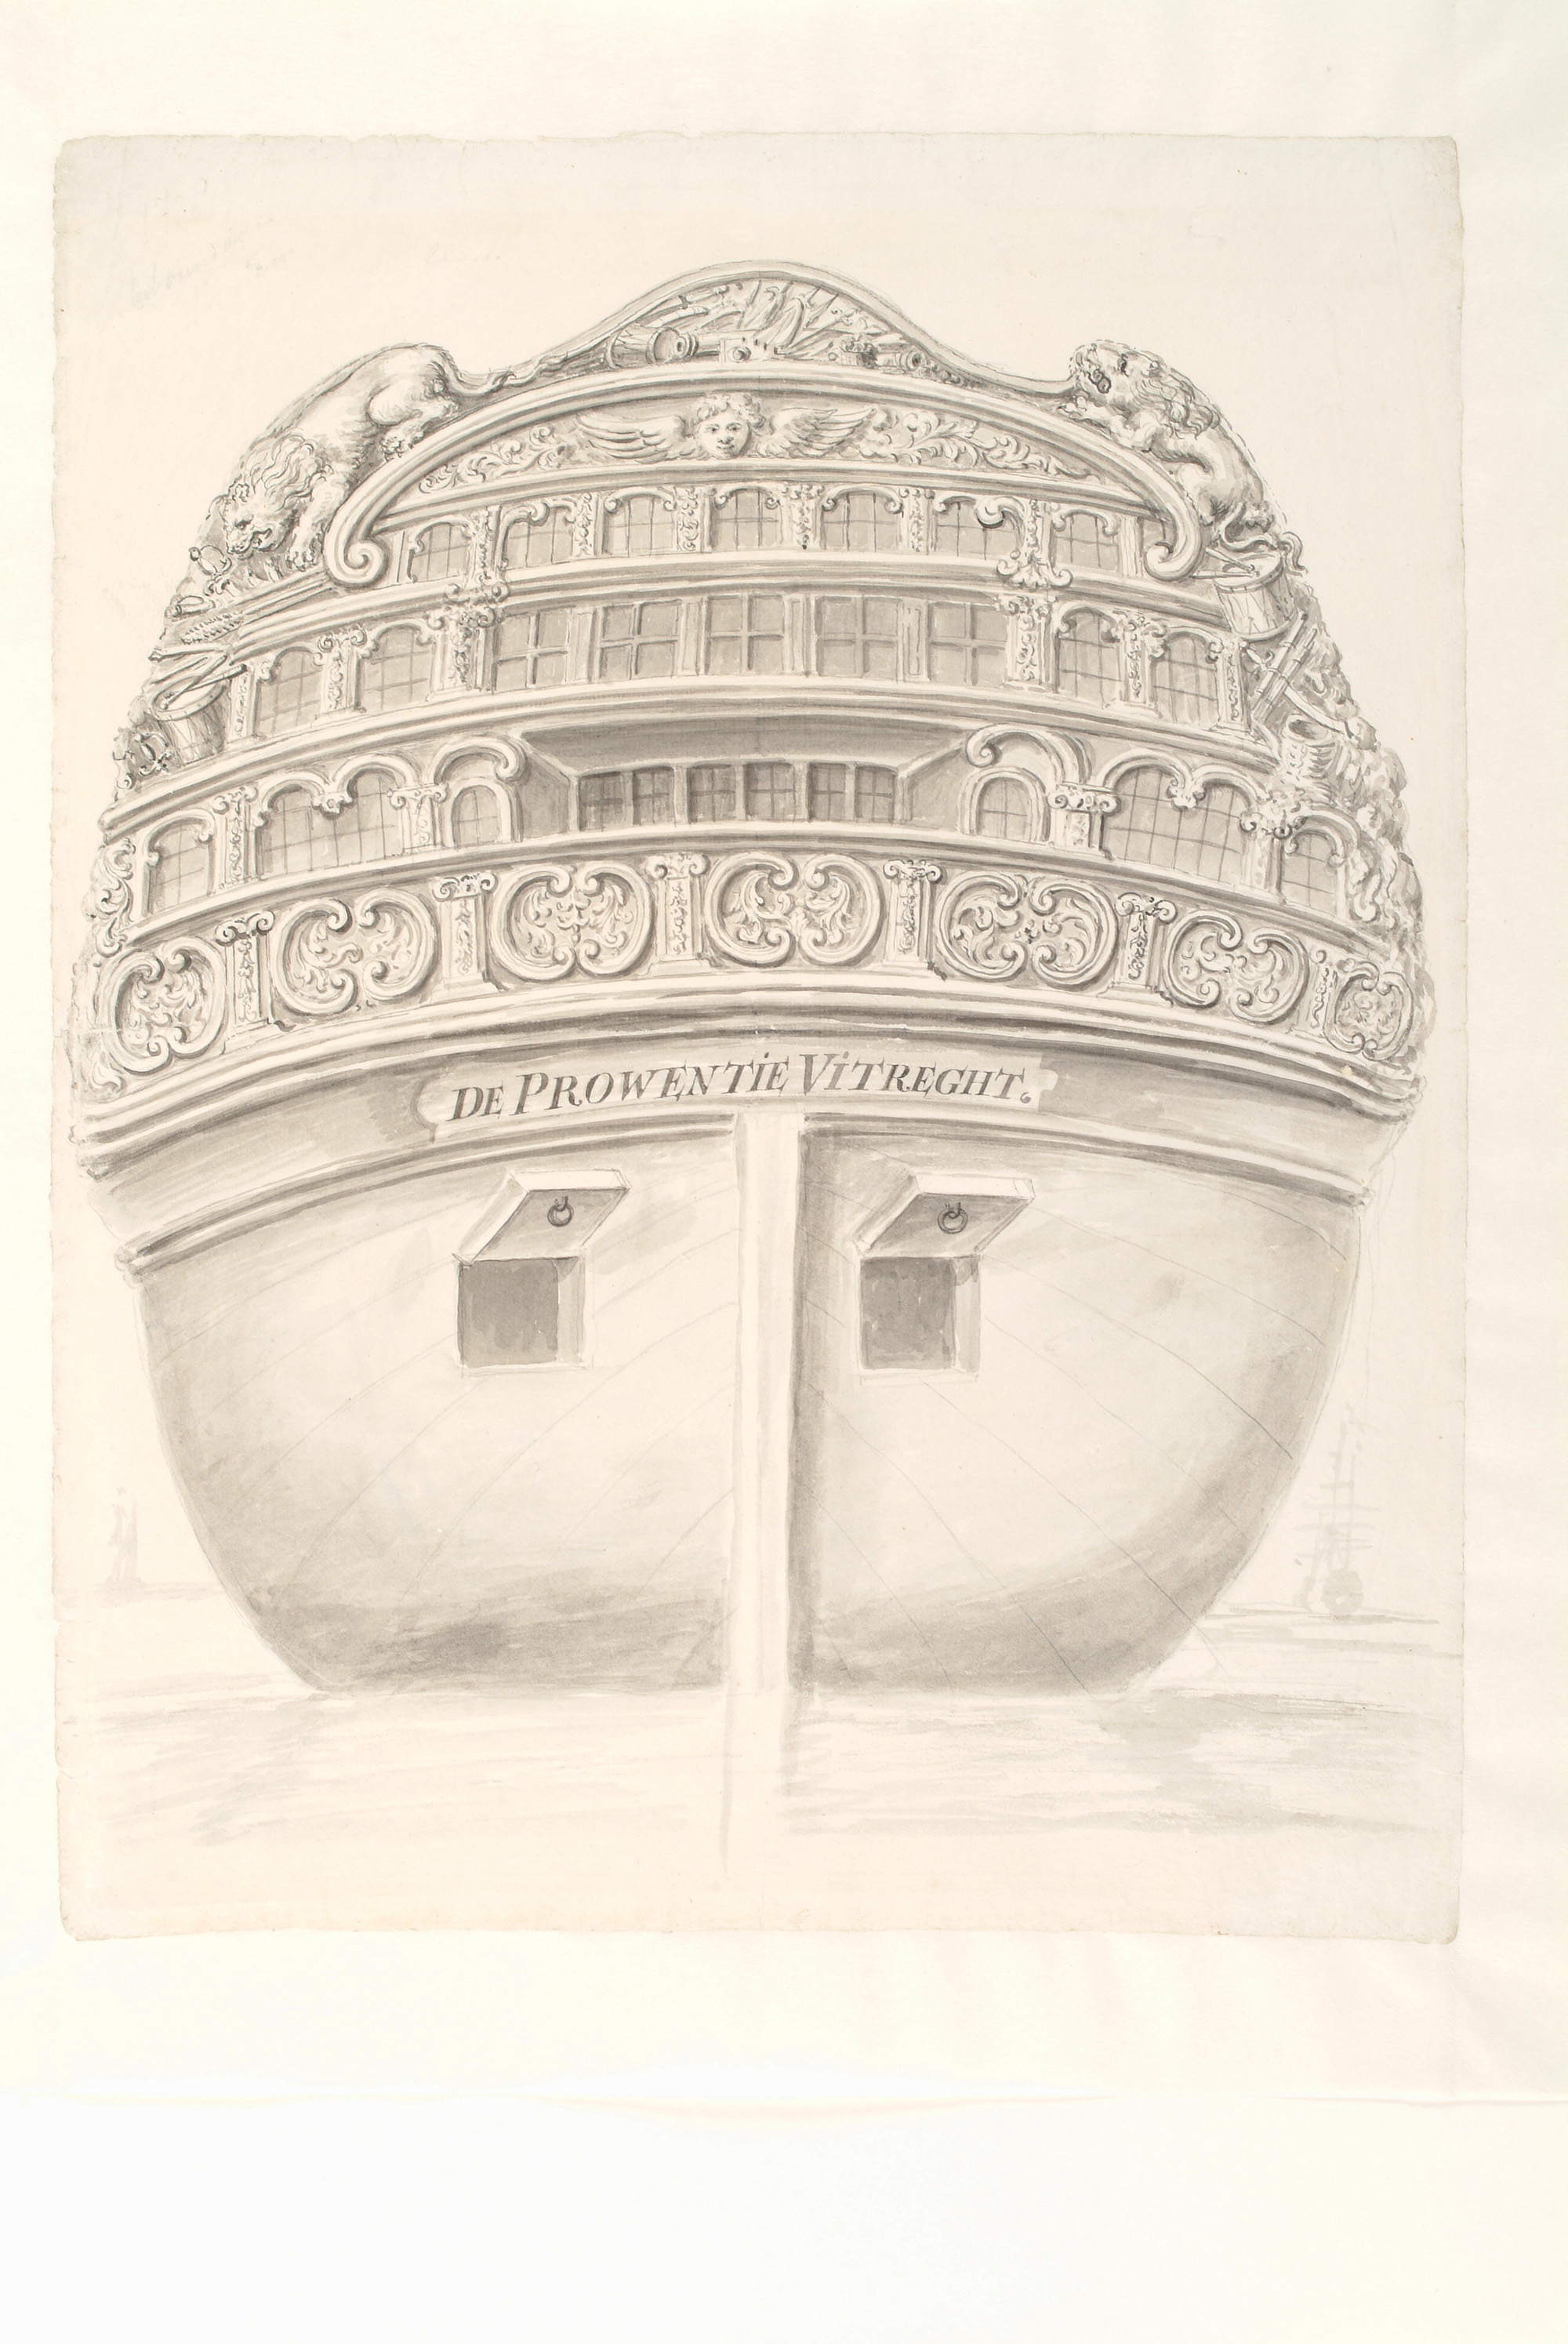 DE PROWENTiE ViTREGHT.